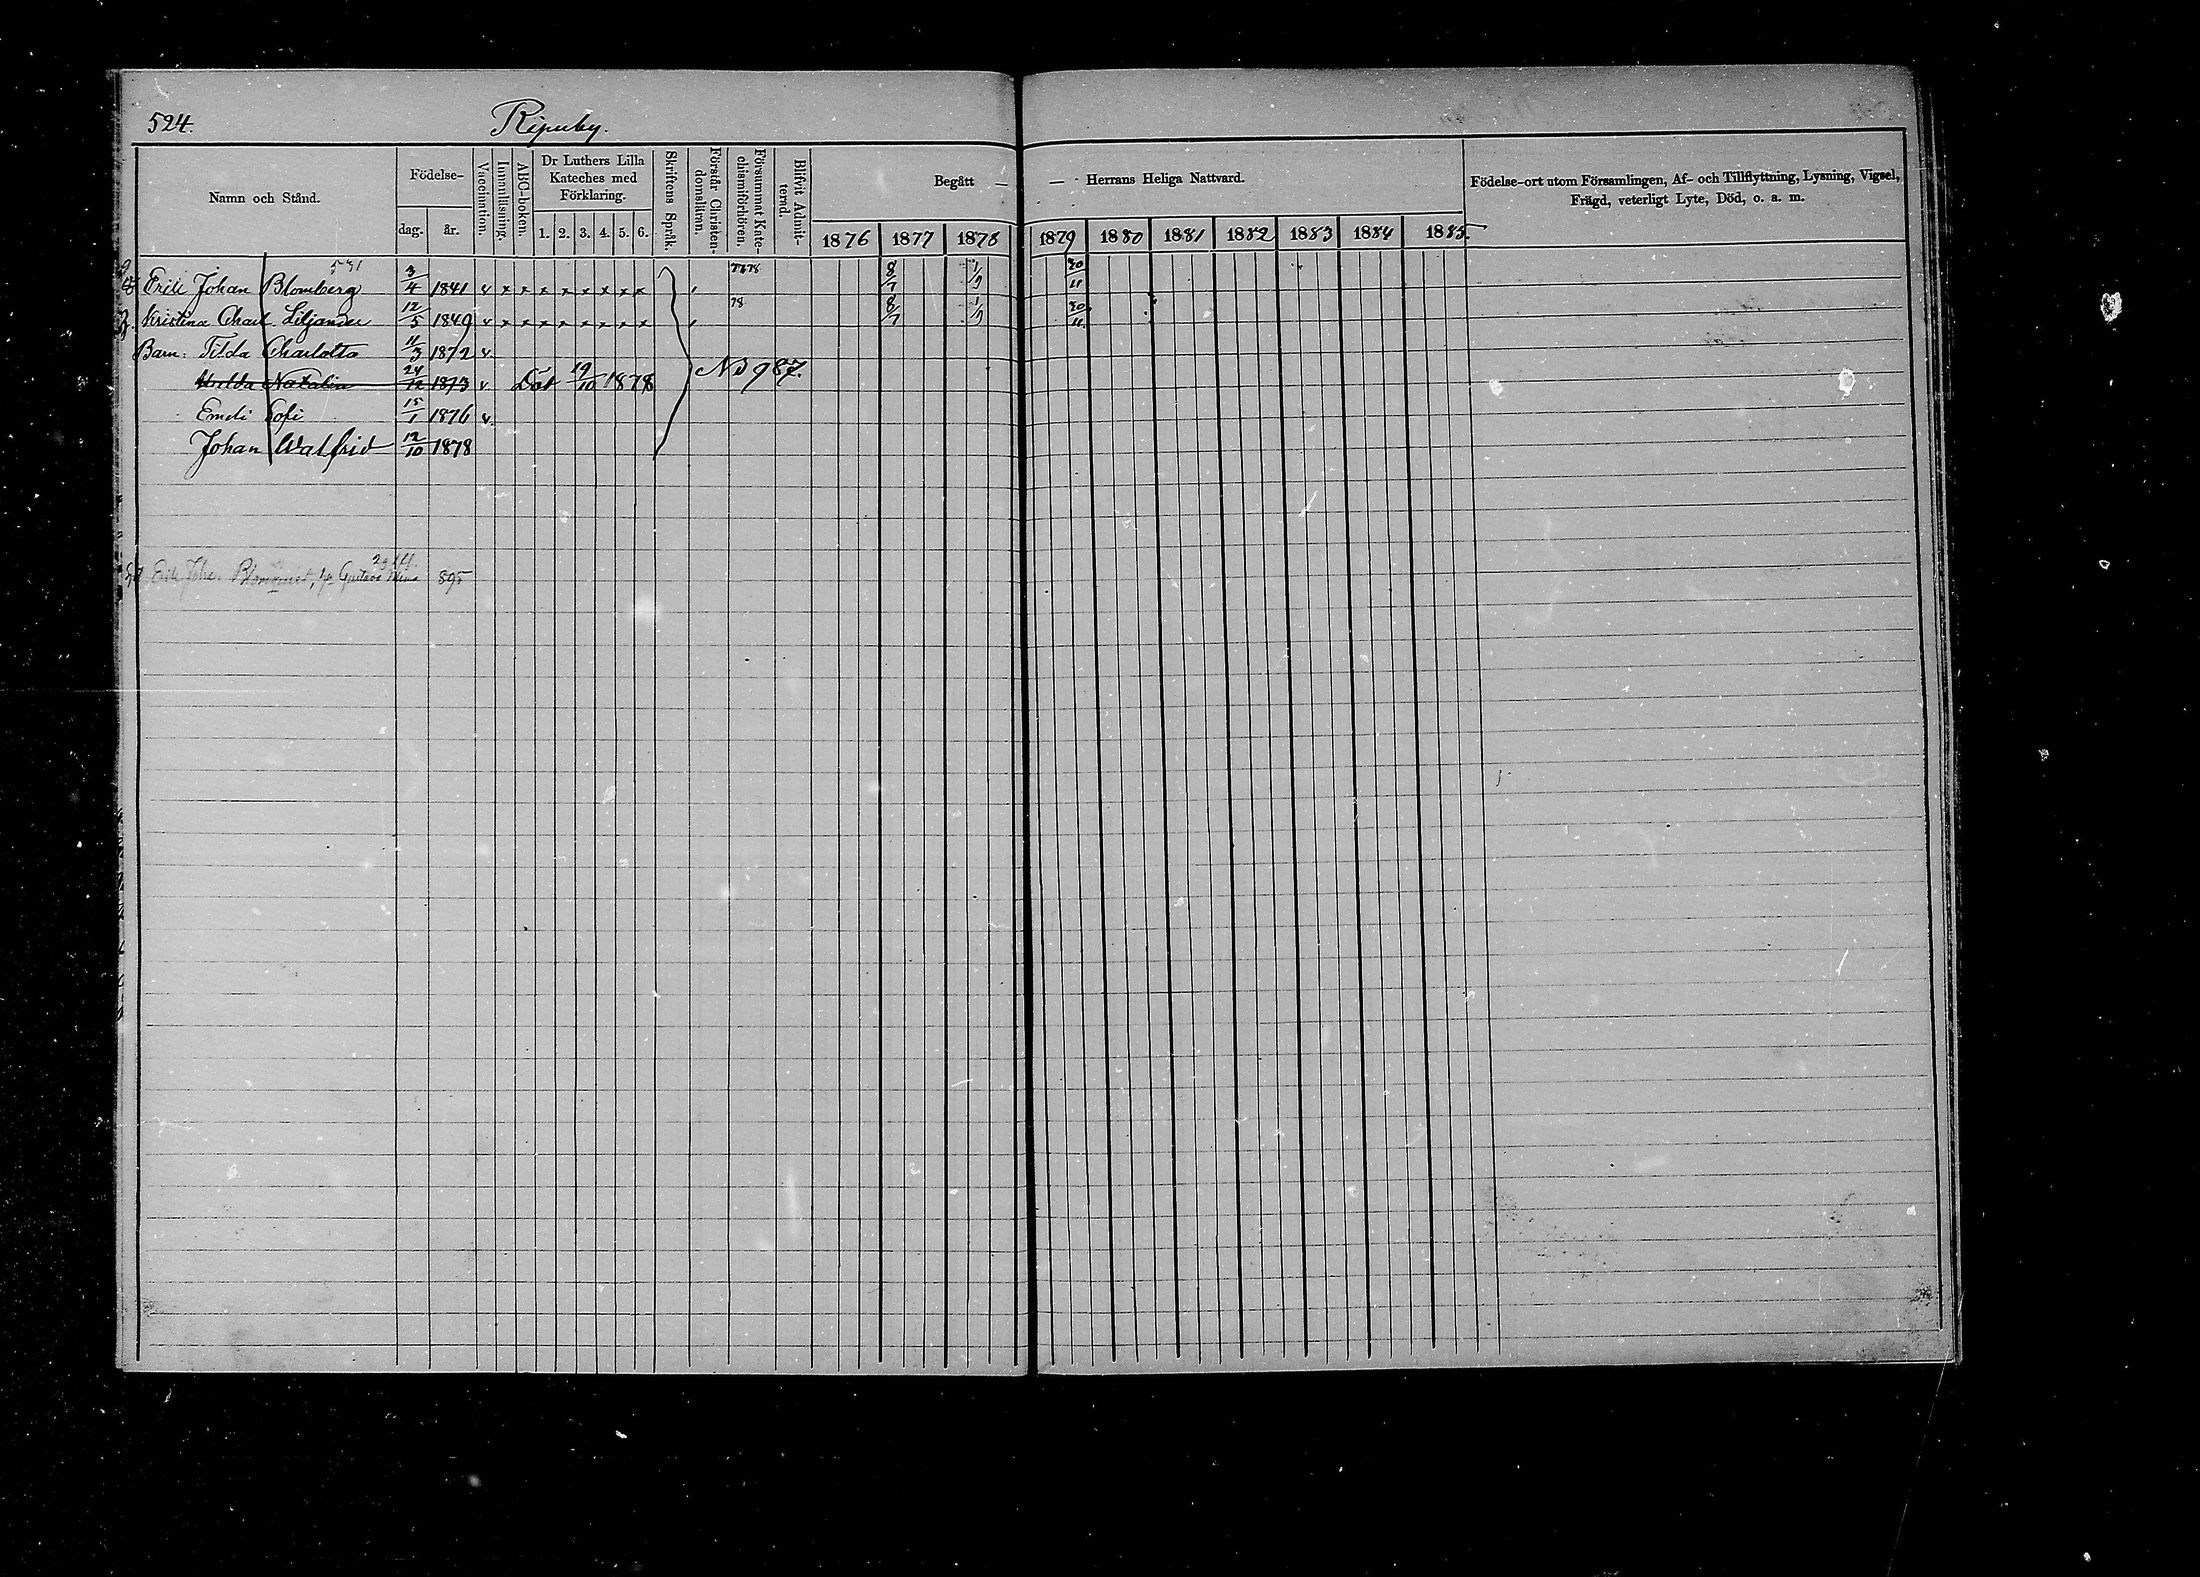 524. Ripuby.
Namn och Stånd. Födelse- dag. år. Vaccination. Innanläsning. ABC-boken. Dr Luthers Lilla Kateches med Förklaring. 1. 2. 3. 4. 5. 6. Skriftens Språk. Förstår Christendomsläran. Försummat Katechismiförhören. Blifvit Admitterad. Begått — — Herrans Heliga Nattvard. Födelse-ort utom Församlingen, Af- och Tillflyttning, Lysning, Vigsel, Frägd, veterligt Lyte, Död, o. a. m.
1876 1877 1878 1879 1880 1881 1882 1883 1884 1885
531
Erik Johan Blomberg 3/4 1841 v x x x x x x x x 77 78 8/7 1/9 30/11
Kristina Charl. Liljander 12/5 1849 v x x x x x x x x 78 8/7 1/9 30/11
Barn: Tilda Charlotta 11/3 1872 v.
Hulda Natalia 24/12 1873 v Död 19/10 1878 No 987.
Emeli Sofi 15/1 1876 v.
Johan Walfrid 12/10 1878
Erik Joha. Blomqvist, Gustava 895